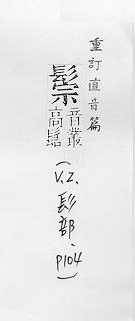 重訂直音篇
鬃
音叢
高髻
(V.2.髟部、P104)